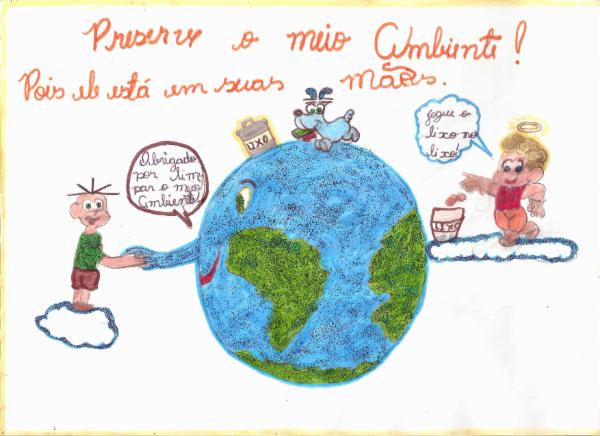 Preserve o meio Ambiente!
Pois ele está em suas mãos.
Obrigado
por lim
par o meio
Ambiente!
LIXO
Jogue o
lixo no
lixo!
LIXO